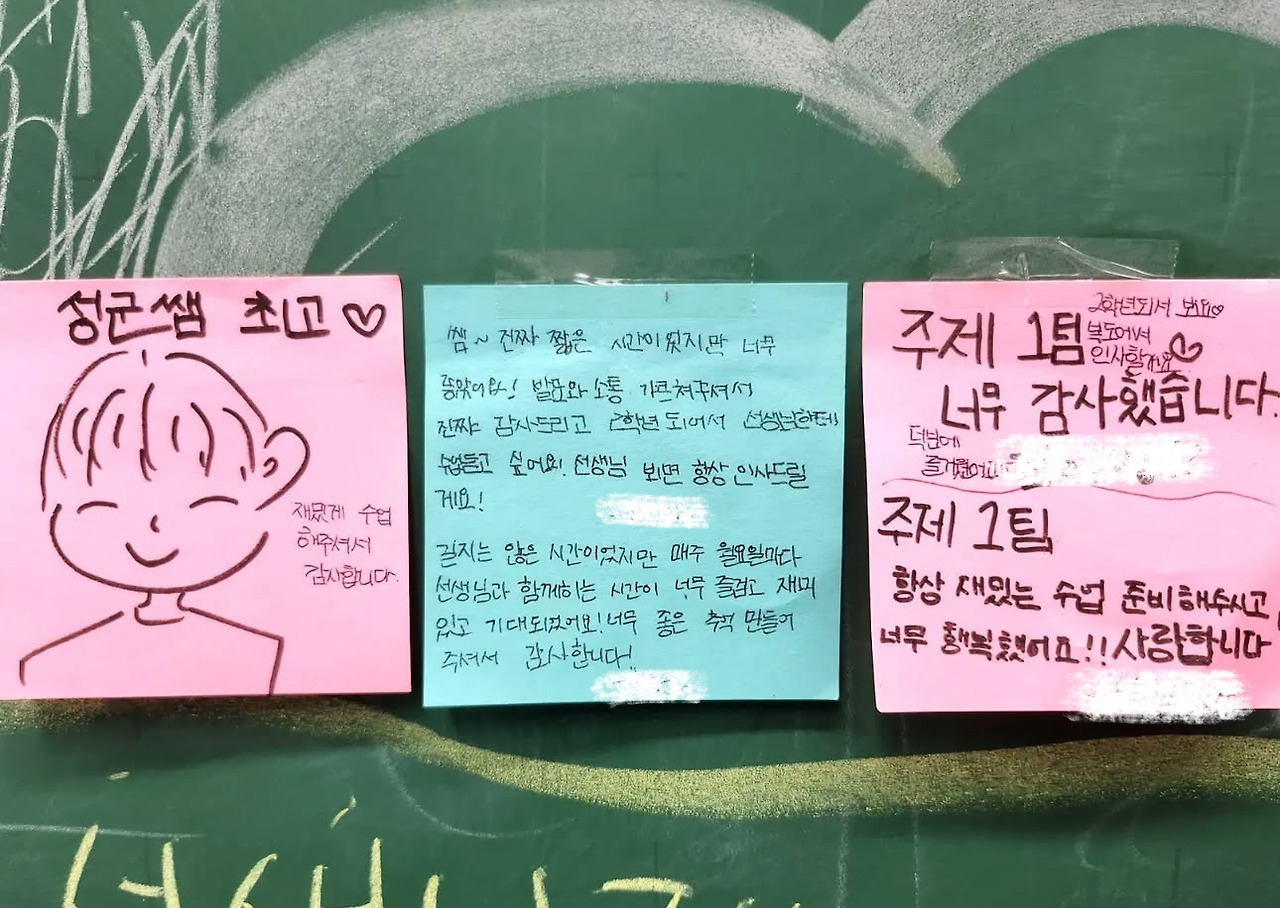 성균쌤 최고♡
재밌게 수업
해주셔서
감사합니다.
쌤~ 진짜 짧은 시간이었지만 너무
좋았어요! 발표와 소통 가르쳐주셔서
진짜 감사드리고 2학년 되어서 선생님한테
수업듣고 싶어요! 선생님 보면 항상 인사드릴
게요!
길지는 않은 시간이었지만 매주 월요일마다
선생님과 함께하는 시간이 너무 즐겁고 재미
있고 기대되었어요! 너무 좋은 추억 만들어
주셔서 감사합니다!!
주제 1팀
2학년되서 봐요♡
복도에서
인사할게요♡
너무 감사했습니다.
덕분에
즐거웠어요
주제 1팀
항상 재밌는 수업 준비해주시고,
너무 행복했어요!! 사랑합니다